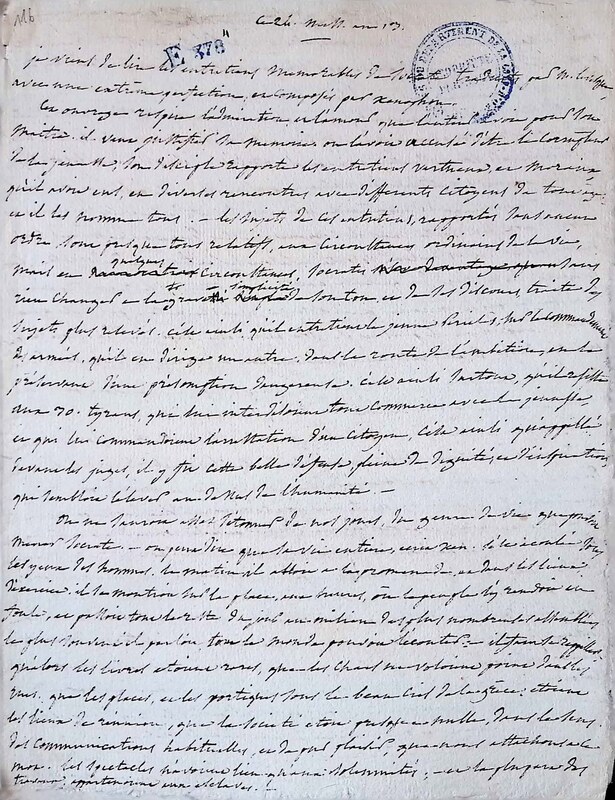 116
ce 24. Mess. an 13.
E 378
je viens de lire les entretiens memorables de
avec une extreme perfection, et composés par xenophon.
Cet ouvrage respire l'admiration et l'amour que l'auteur avoit pour son
Maitre. il veut justifier sa memoire. on l'avoit accusé d'être le corrupteur
de la jeunesse, son disciple rapporte les entretiens vertueux, et moraux
qu'il avoit eus, en diverses rencontres avec differents citoyens de tout age
et il les nomme tous. - les sujets de ces entretiens, rapportés sans aucun
ordre, sont presque tous relatifs, aux circonstances ordinaires de la vie,
mais en quelques circonstances, Socrates sans
rien changer à la gravité à la simplicité de son ton, et de ses discours, traite des
sujets plus relevés. C'est ainsi qu'il entretient le jeune Pericles, sur le commandement
des armées, qu'il en dirige un autre, dans la route de l'ambition, en le
préservant d'une présomption dangereuse. C'est ainsi surtout, qu'il resista
aux 30. tyrans, qui lui interdisoient tout commerce avec la jeunesse,
et qui lui commandoient l'arrestation d'un citoyen, C'est ainsi, qu'appellé
devant les juges, il y fit cette belle defense, pleine de dignité, et d'inspiration
qui sembloit l'elever au dessus de l'humanité. -
On ne sauroit assés s'étonner de nos jours, du genre de vie que
menoit Socrate. - on peut dire que sa vie entiere, s'est écoulée sous
les yeux des hommes. le matin il alloit à la promenade, et dans les lieux
d'exercice. il se montroit sur la place, aux heures, où le peuple s'y rendoit en
foule, et passoit tout le reste du jour au milieu des plus nombreuses assemblées,
le plus souvent il parloit, tout le monde pouvoit l'écouter - il faut se rappeller
qu'alors les livres etoient rares, que les chars ne voloient point dans les
rues, que les places, et les portiques sous le beau ciel de la grèce, etoient
les lieux de reunion, que la societé etoit presque nulle, dans le sens
des communications habituelles, et de pur plaisir, que nous attachons à ce
mot. les spectacles n'avoient lieu qu'aux solemnités; - et la plupart des
travaux appartenoient aux esclaves. -